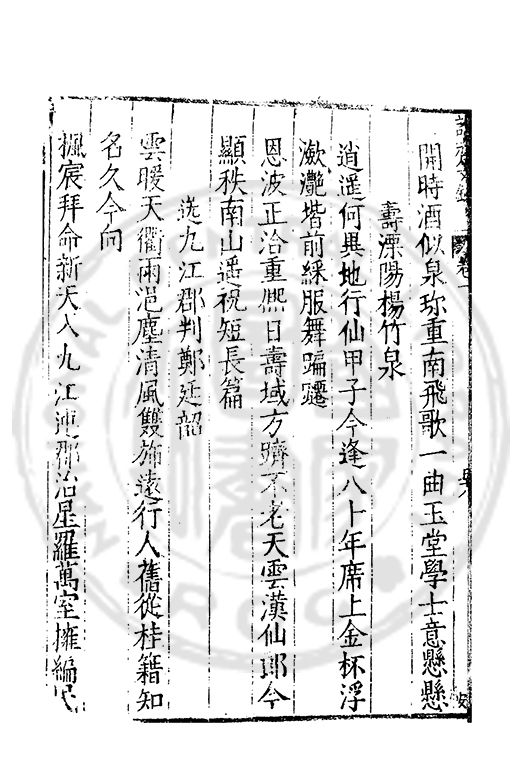 開時酒似泉珍重南飛歌一曲玉堂學士意懸懸
壽溧陽楊竹泉
逍遥何異地行仙甲子今逢八十年席上金杯浮
瀲灧堦前綵服舞蹁躚
恩波正洽重熙日壽域方躋不老天雲漢仙郎今
顯秩南山遥視短長篇
送九江郡判鄭廷韶
雲暖天衢雨浥塵清風雙斾遠行人舊從桂籍知
名久今向
楓宸拜命新天入九江連郡治星羅萬室擁編氓
卷一